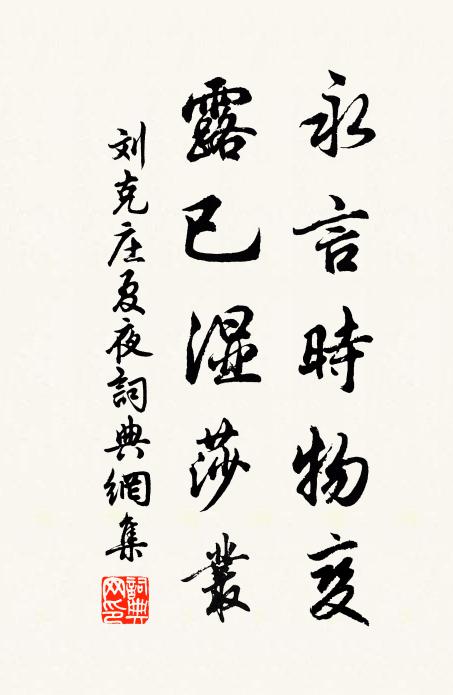 永言時物变
露已湿莎叢
刘克庄夏夜詞典網集
詞典網印